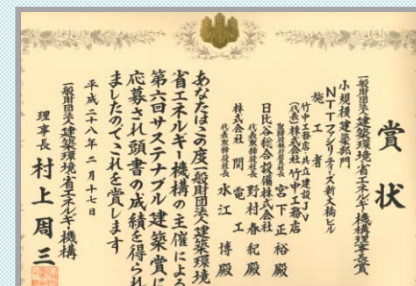 賞状
一般財団法人建築環境・省エネルギー機構理事長賞
小規模建築部門
NTTファシリティーズ新大橋ビル
施工者
竹中工務店・共立建設JV
(代表)株式会社 竹中工務店
取締役社長 宮下正裕殿
日比谷総合設備株式会社
代表取締役社長 野村春紀殿
株式会社 関電工
代表取締役社長 水江博殿
あなたはこの度一般財団法人建築環境
省エネルギー機構の主催による
第六回サステナブル建築賞に
応募され頭書の成績を得られ
ましたのでこれを賞します
平成二十八年二月十七日
一般財団法人建築環境・省エネルギー機構
理事長 村上周三